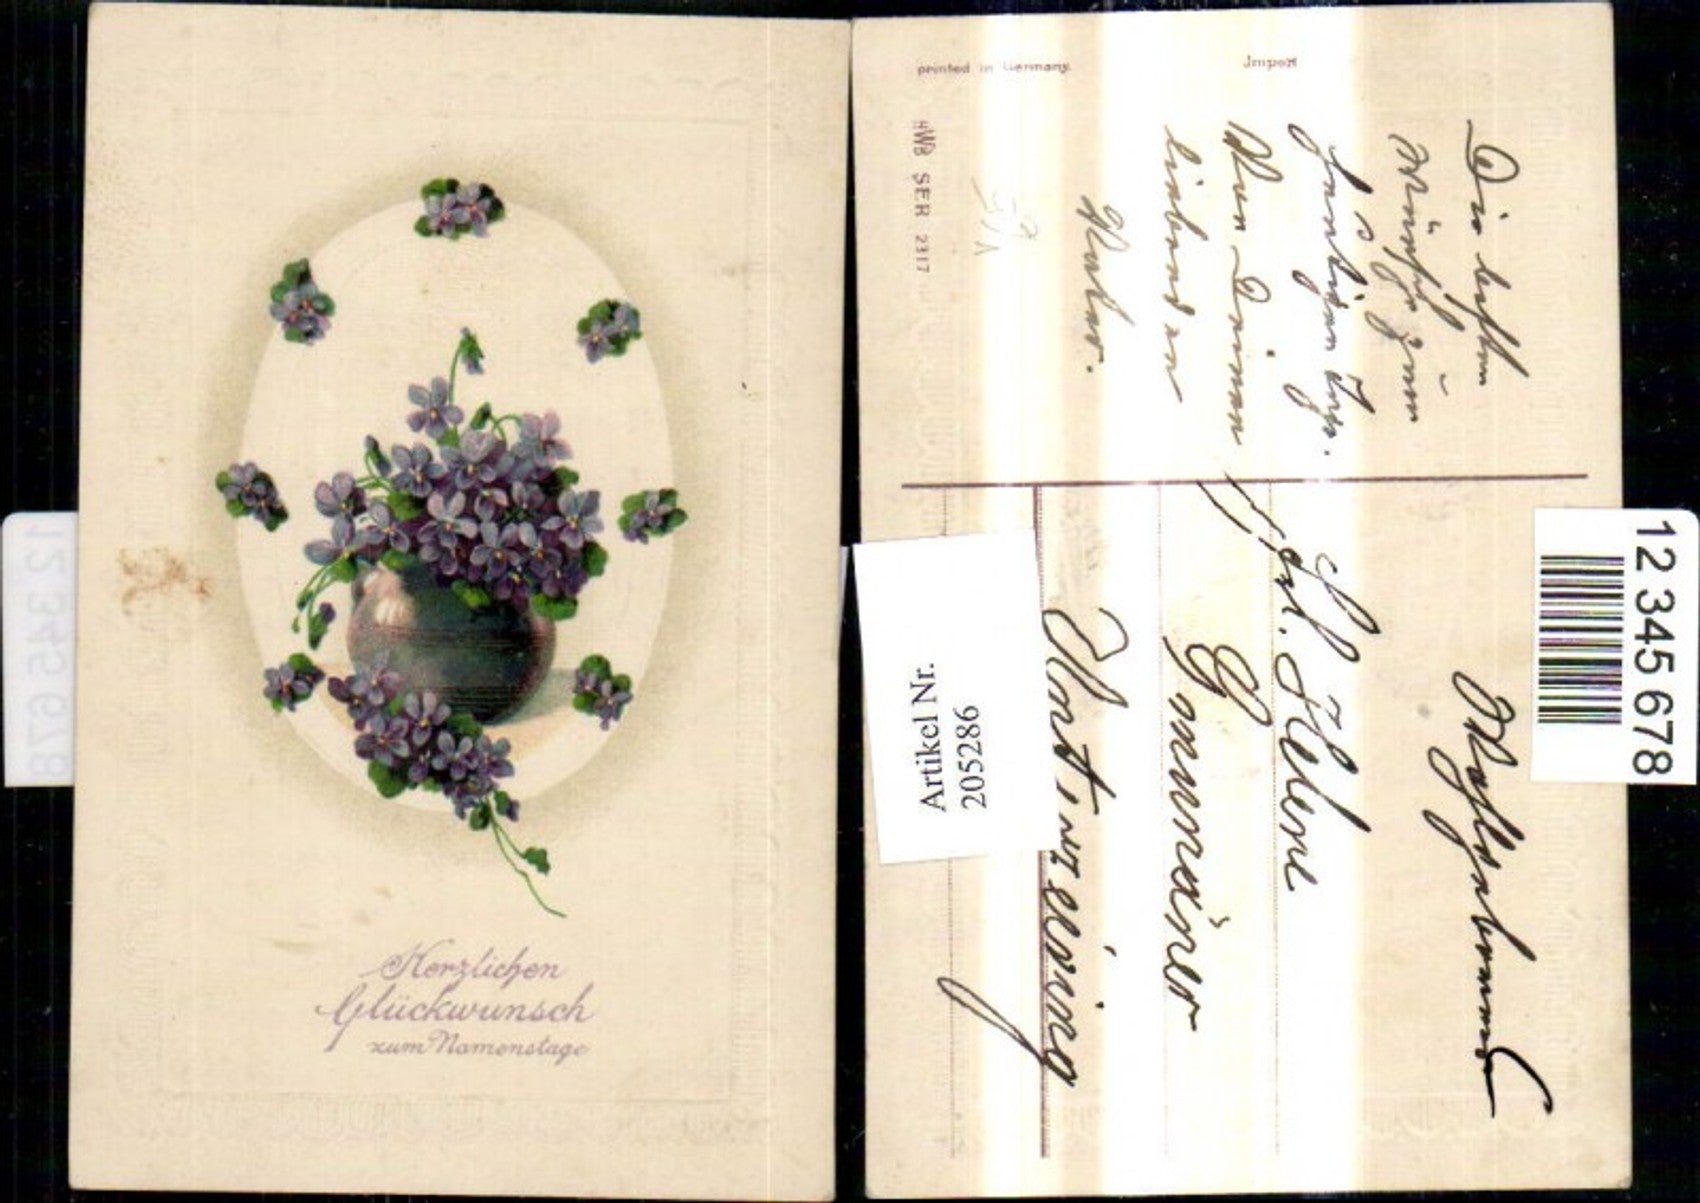 Herzlichen
Glückwunsch
zum Namenstage
printed in Germany.
Import
HWB SER 2317
Die besten
Wünsche zum
heutigen Tage.
Von Deinem
liebenden
Vater.
Wohlgeboren
Frl. Helene
Artikel Nr.
205286
12 345 678
12 345 678